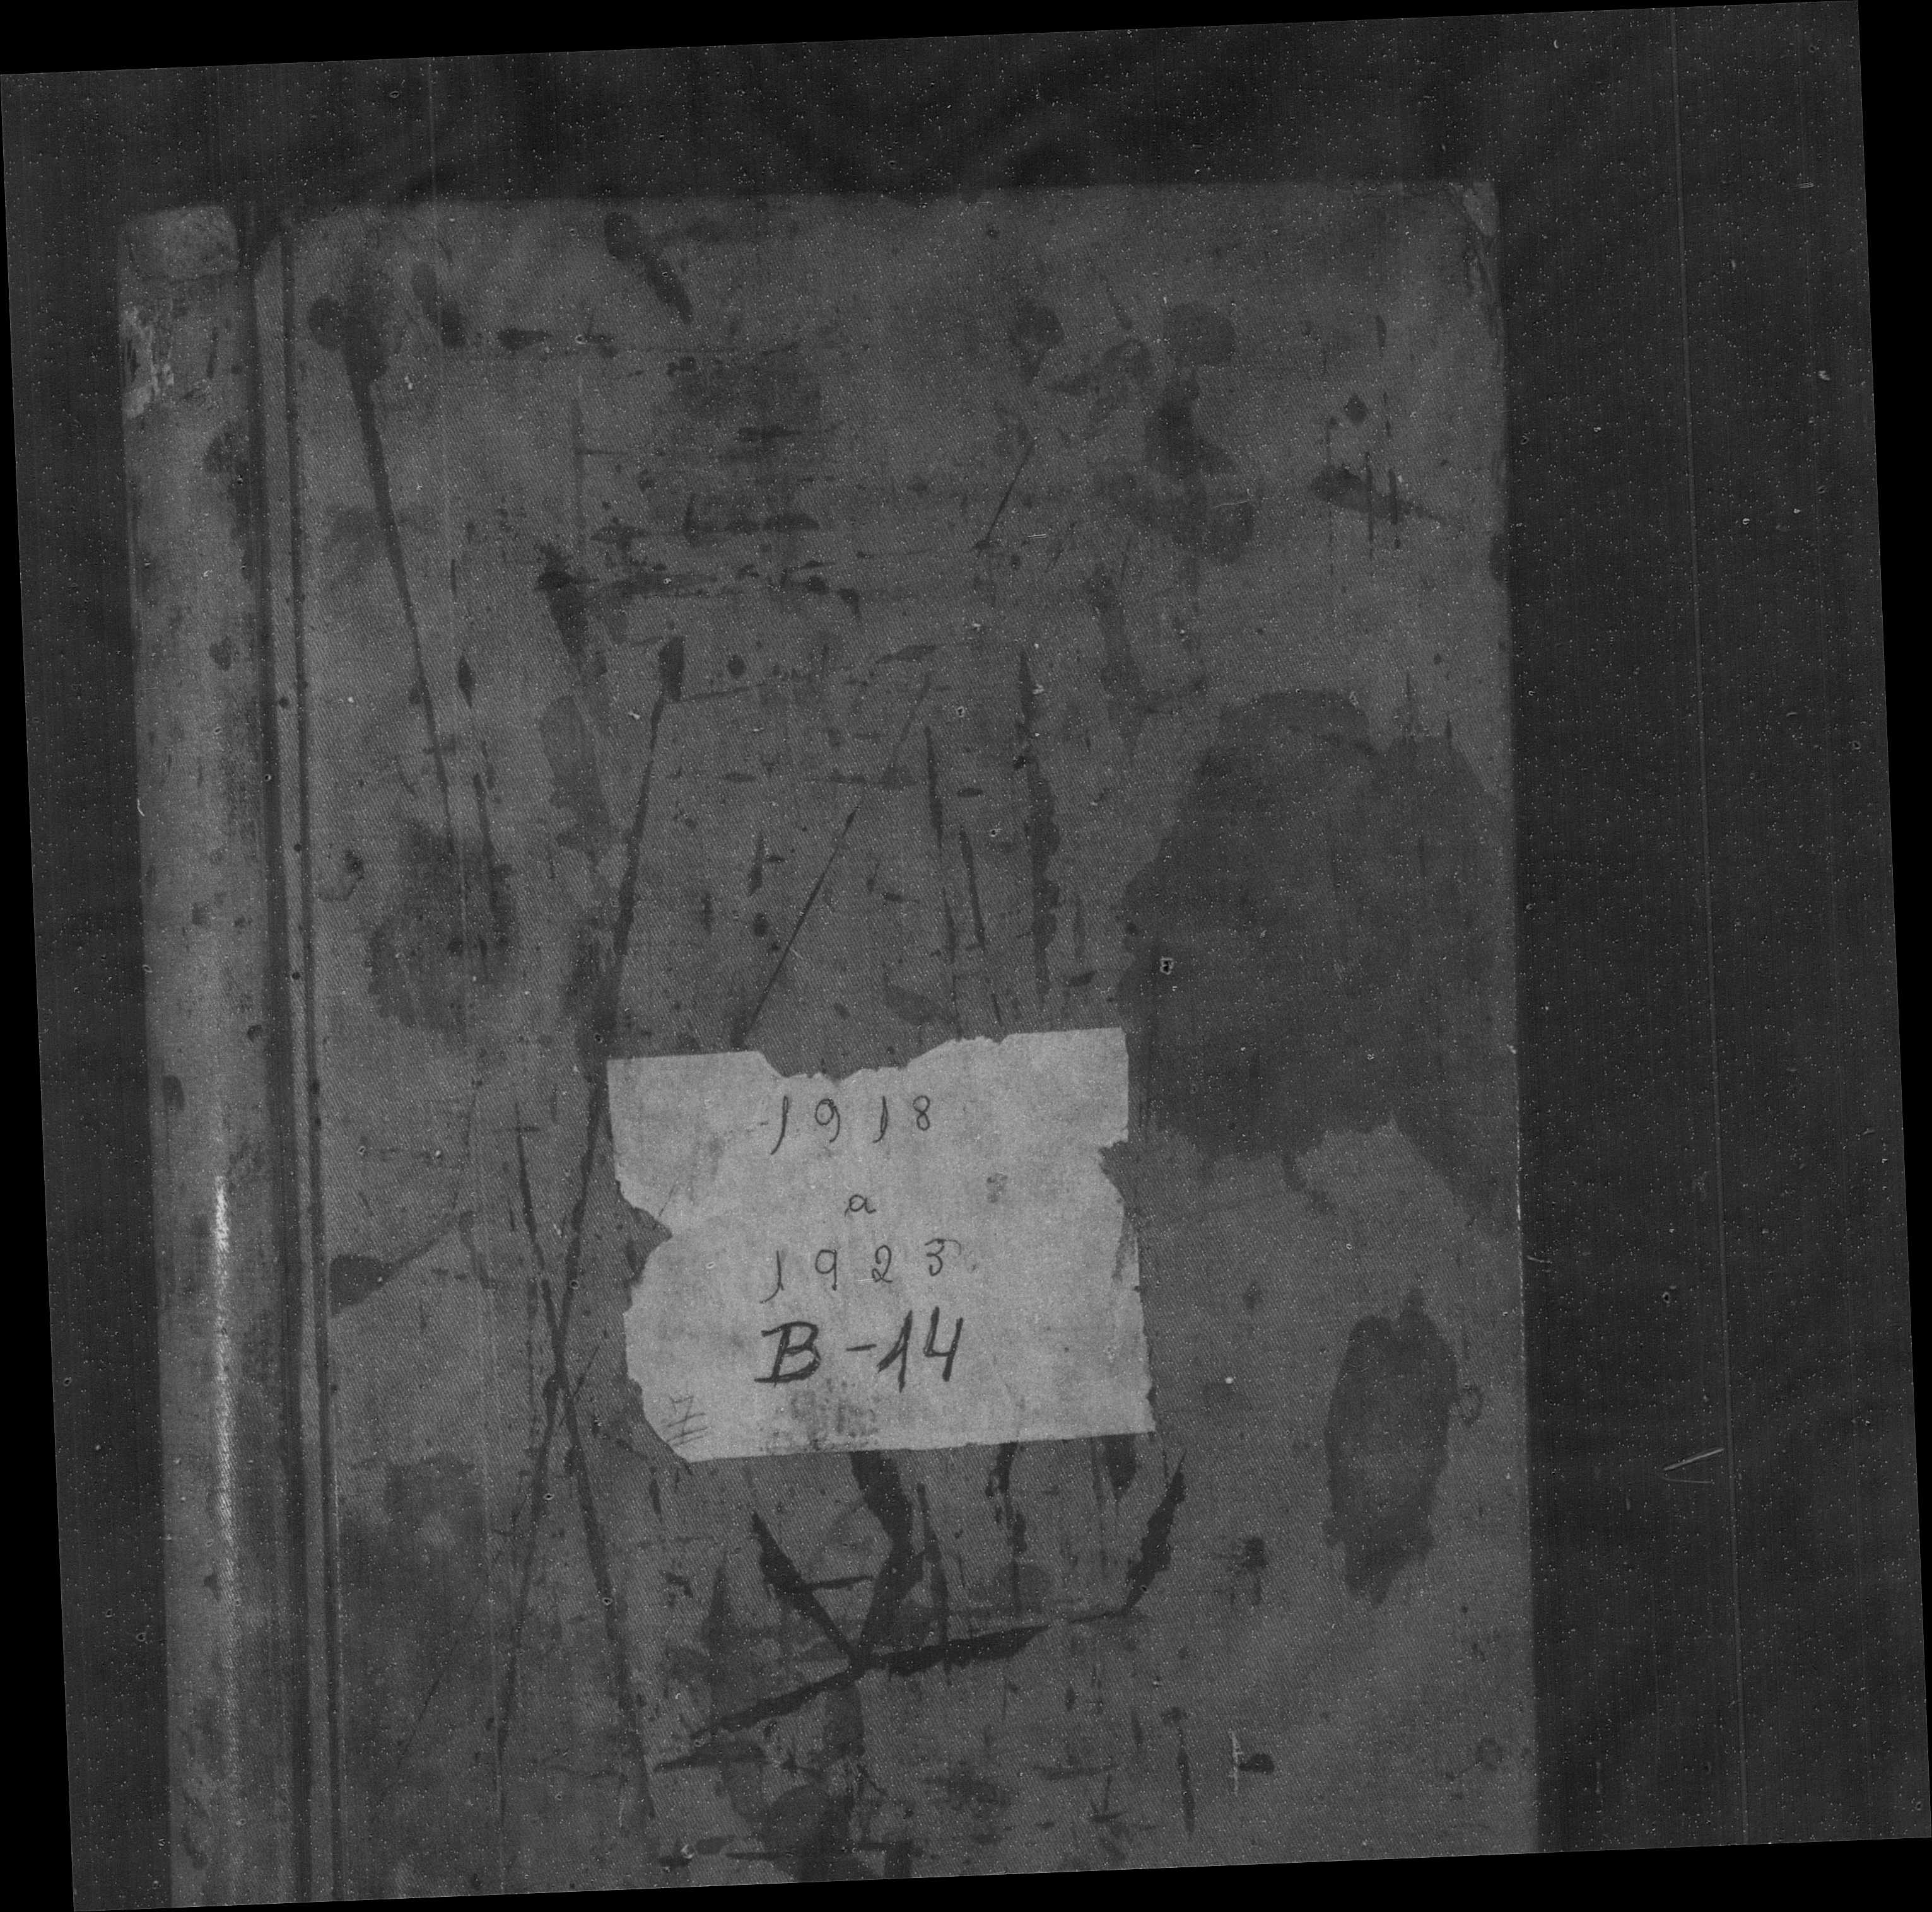 1918
a
1923
B-14